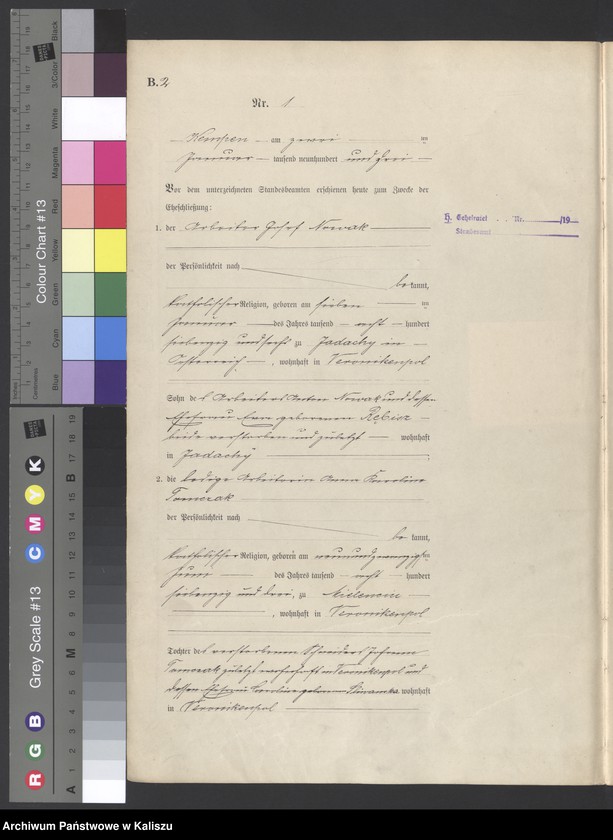 B. 2
Nr. 1
Kempen am zwei ten
Januar tausend neunhundert und drei
Vor dem unterzeichneten Standesbeamten erschienen heute zum Zwecke der
Eheschließung:
1. der Arbeiter Josef Nowak
der Persönlichkeit nach
bekannt,
katholischer Religion, geboren am sieben ten
Januar des Jahres tausend acht hundert
siebenzig und sechs zu Jadachy in
Österreich, wohnhaft in Weronikenpol
Sohn des Arbeiters Anton Nowak und dessen
Ehefrau geborenen
beide verstorben und zuletzt wohnhaft
in Jadachy
2. die ledige Arbeiterin Anna Karolina
Tomczak
der Persönlichkeit nach
bekannt,
katholischer Religion, geboren am neunundzwanzigsten
Juni des Jahres tausend acht hundert
siebenzig und drei, zu
, wohnhaft in Weronikenpol
Tochter des verstorbenen Schneiders Johann
Tomczak zuletzt wohnhaft in Weronikenpol und
dessen Ehefrau geborenen wohnhaft
in Weronikenpol
H. Geheiratet Nr. /19
Standesamt
Colour Chart #13
Blue
Cyan
Green
Yellow
Red
Magenta
White
3/Color
Black
Inches
Centimetres
Grey Scale #13
R G B
C M Y K
A
M
B
1 2 3 4 5 6 7 8 9 10 11 12 13 14 15 16 17 18 19
Archiwum Państwowe w Kaliszu